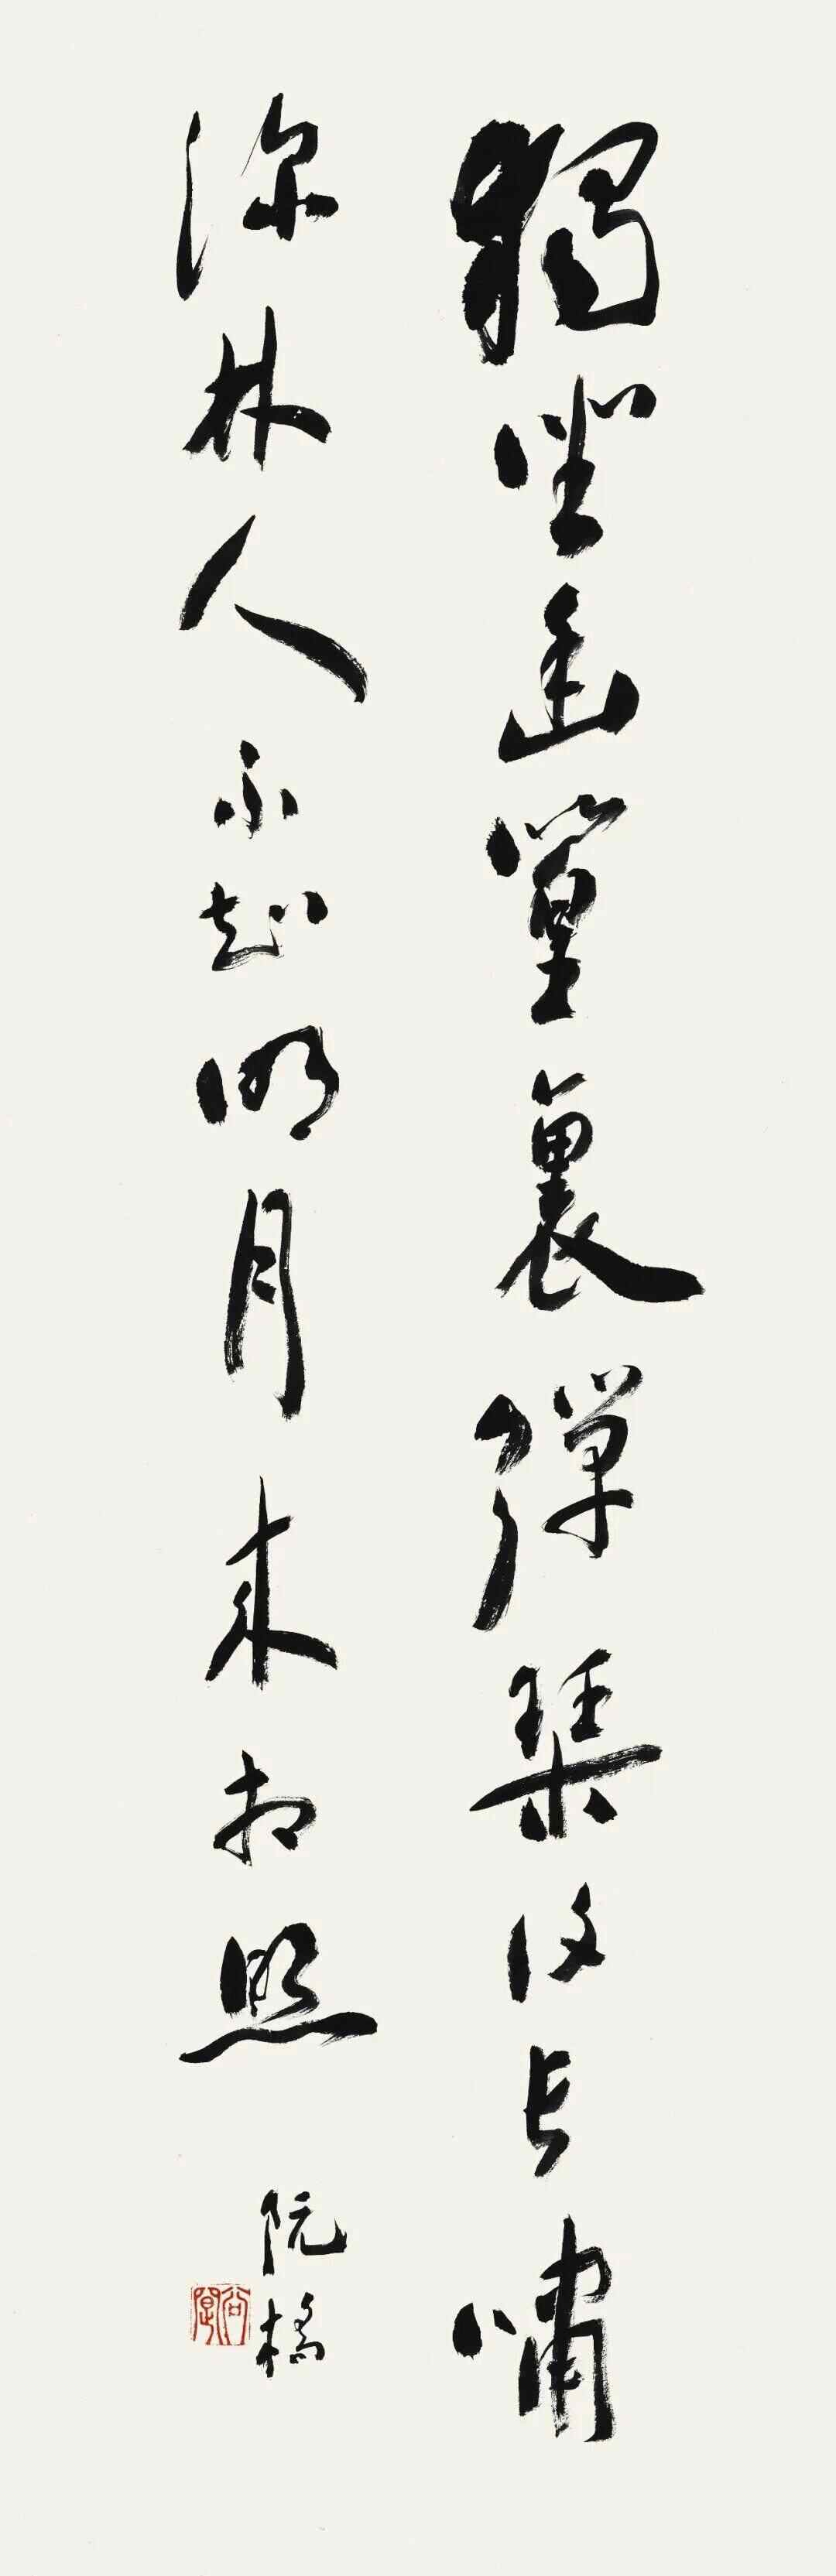 獨坐幽篁裏彈琴復長嘯
深林人不知明月來相照
阮橋